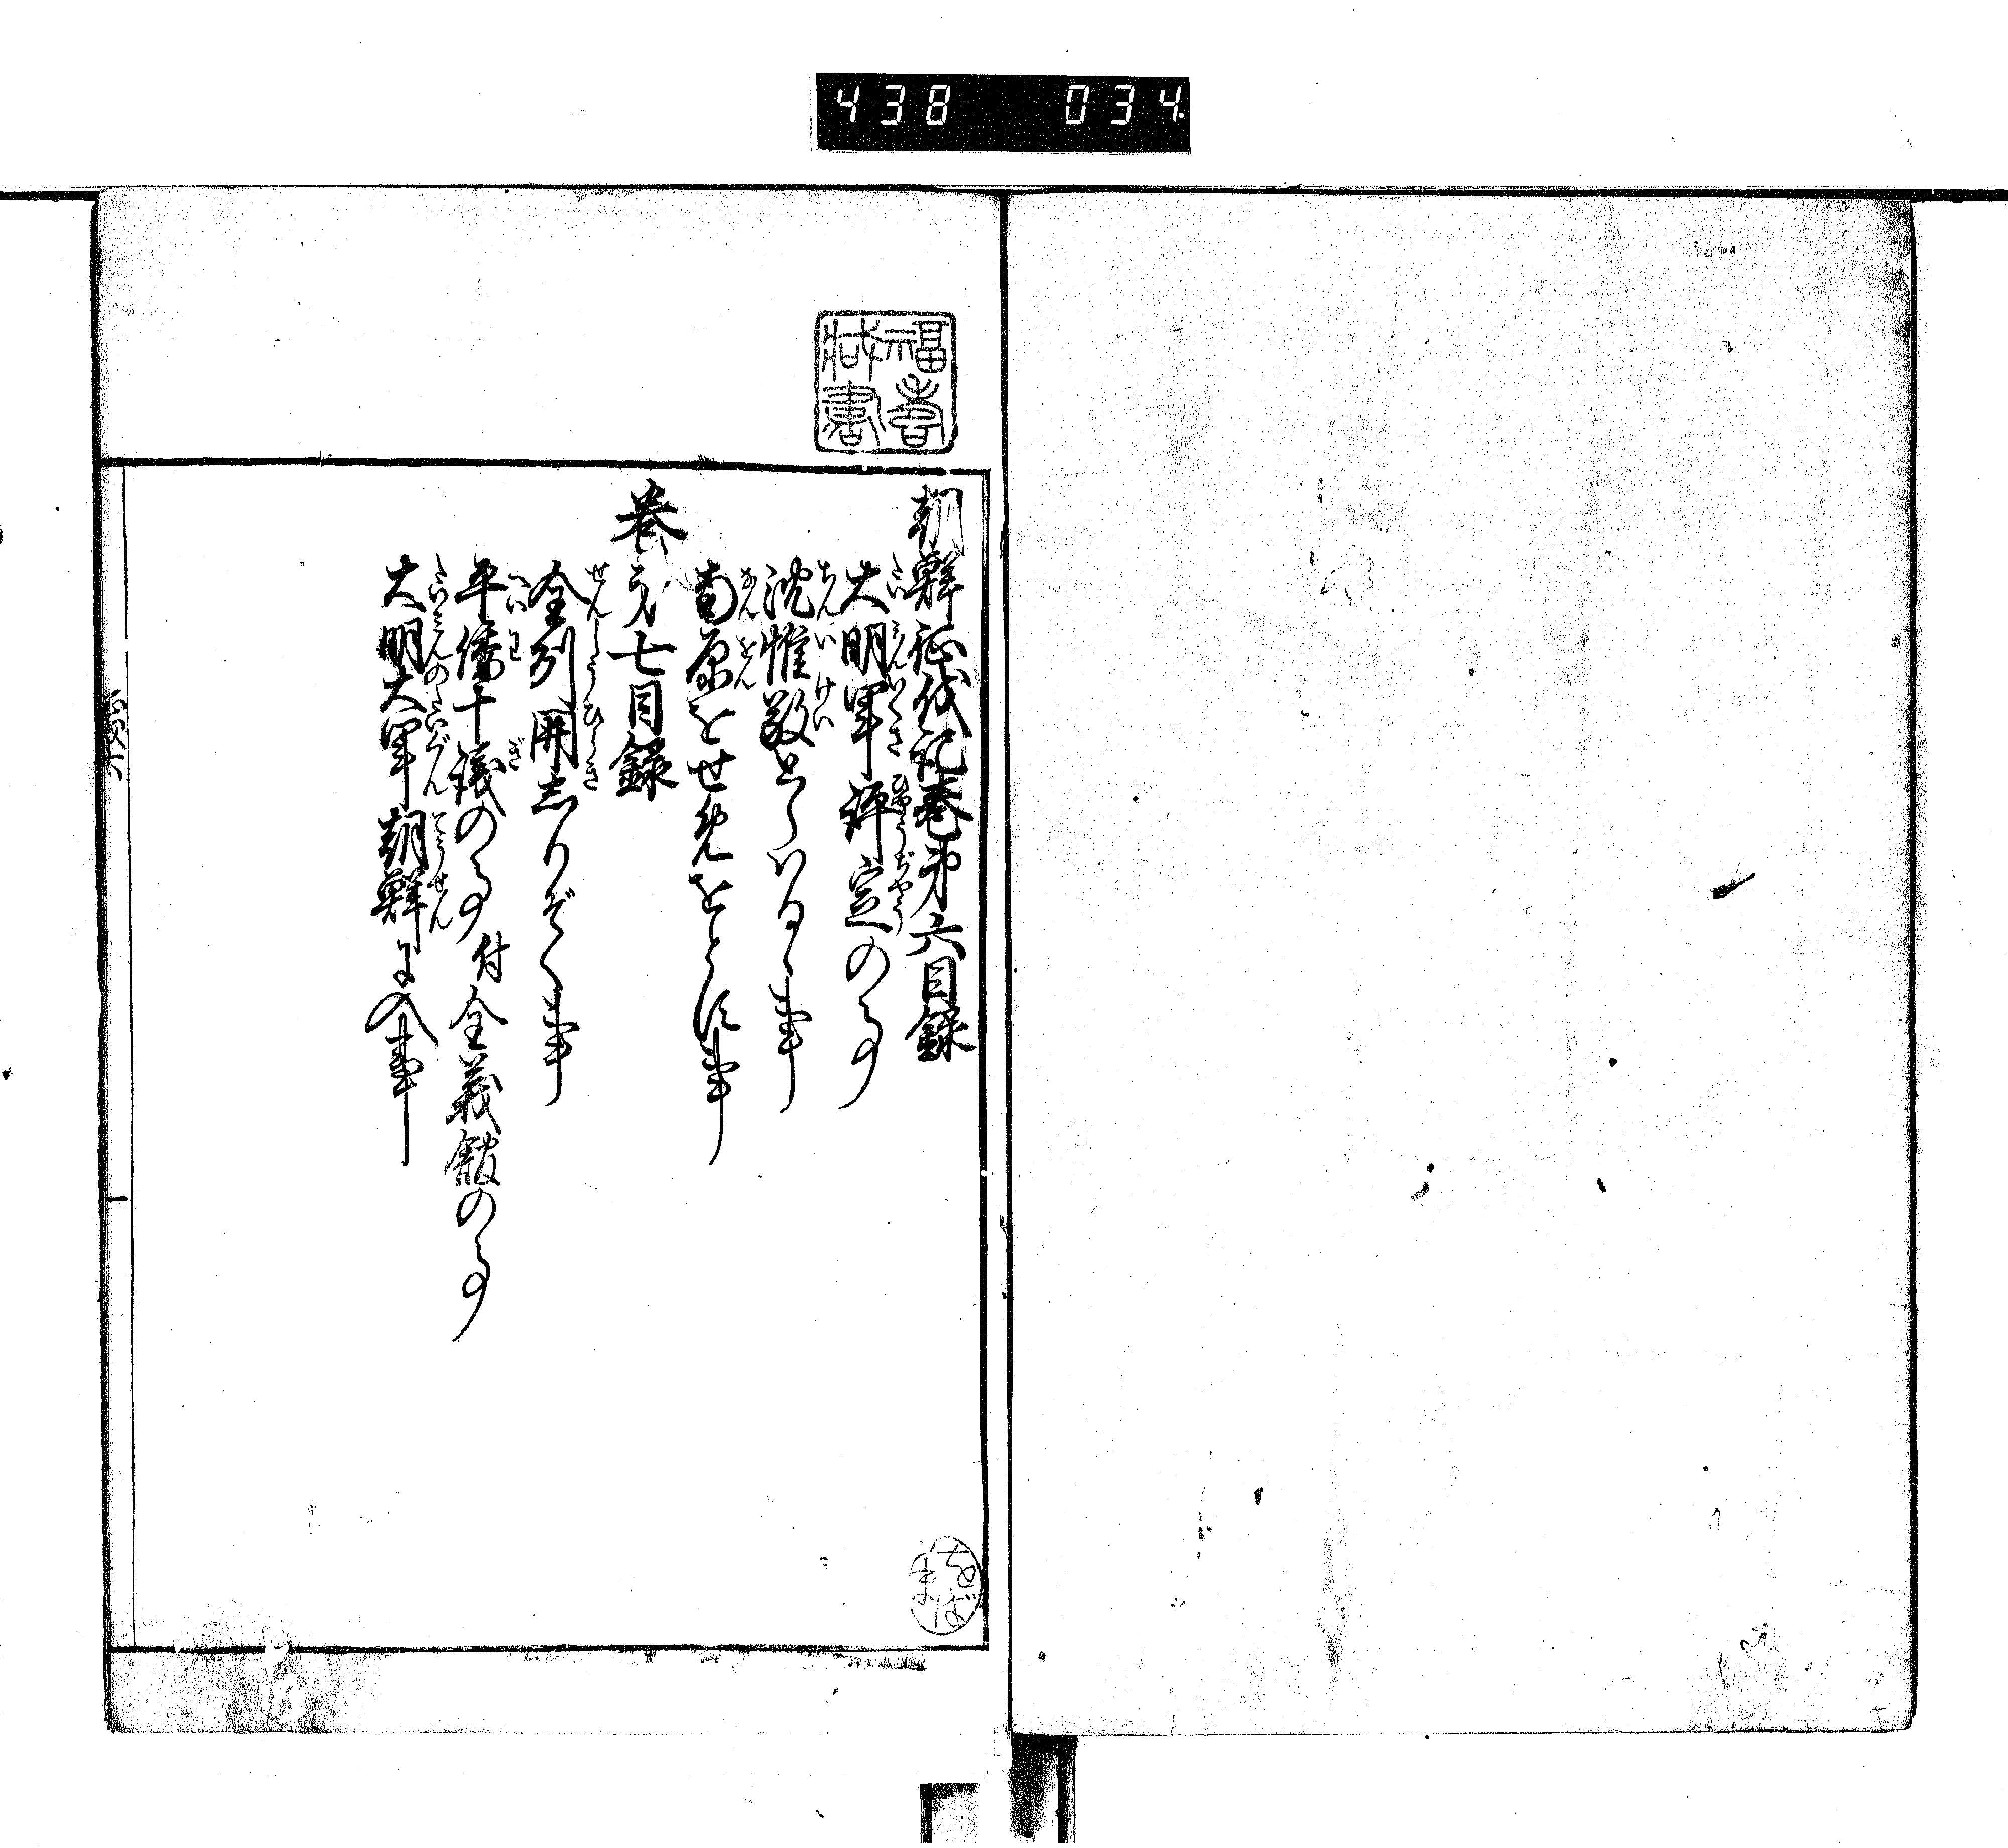 438 034
福壽
蔵書
朝鮮征伐記巻第六目録
大明軍評定の事
沈惟敬とらはるゝ事
南原をせめをとす事
巻第七目録
全州開しりぞく事
平倭十議の事付全義舘の事
大明大軍朝鮮に入事